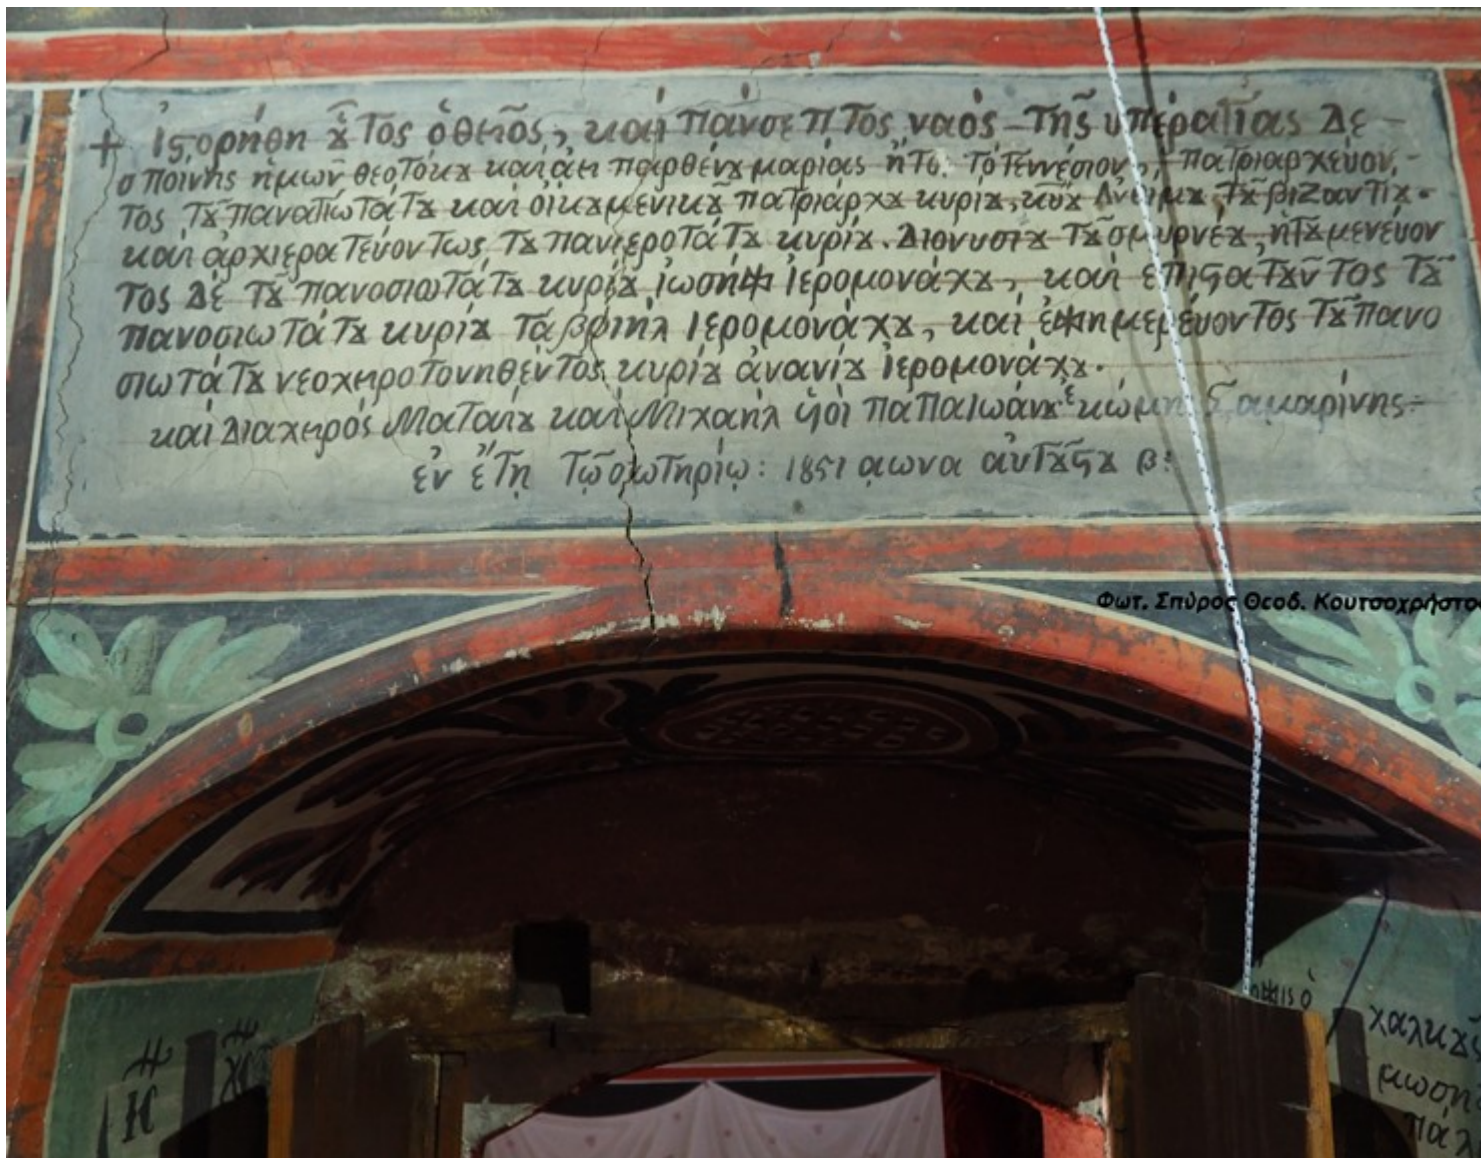 + Ἱστορήθη ȣ̃τος ὁ θεῖος, καὶ πάνσεπτος ναὸς τῆς ὑπεραγίας Δε-
σποίνης ἡμῶν θεοτόκȣ καὶ ἀει παρθένȣ μαρίας ἤτι. τὸ Γεννέσιον, πατριαρχεύον-
τος τȣ̃ παναγιωτάτȣ καὶ οἰκȣμενικȣ̃ πατριάρχȣ κυρίȣ, κυȣ̃ Ανθίμȣ, τȣ̃ βιζαντίȣ.
καὶ ἀρχιερατεύοντως τȣ̃ πανιεροτάτȣ κυρίȣ. Διονυσίȣ τȣ̃ σμυρνέȣ, ἡγȣμενέυον
τος δὲ τȣ̃ πανοσιωτάτȣ κυρίȣ ἰωσὴφ Ἱερομονάχȣ, καὶ ἐπιστατȣ̃ντος τȣ̃
πανοσιωτάτȣ κυρίȣ γαβριὴλ Ἱερομονάχȣ, καὶ ἐφημερέυοντος τȣ̃ πανο
σιωτάτȣ νεοχειροτονηθέντος κυρίȣ ἀνανίȣ ἱερομονάχȣ.
καὶ διαχειρός Ματαίȣ καὶ Μιχαὴλ ὑοὶ παπαιωάνȣ ἐκ κώμης σαμαρίνης
ἐν ἔτη τῷ σωτηρίῳ: 1851 αωνα αὐγȣ́στȣ β:
Φωτ. Σπύρος Θεοδ. Κουτσοχρήστο
χαλκȣς
μωση
παλ